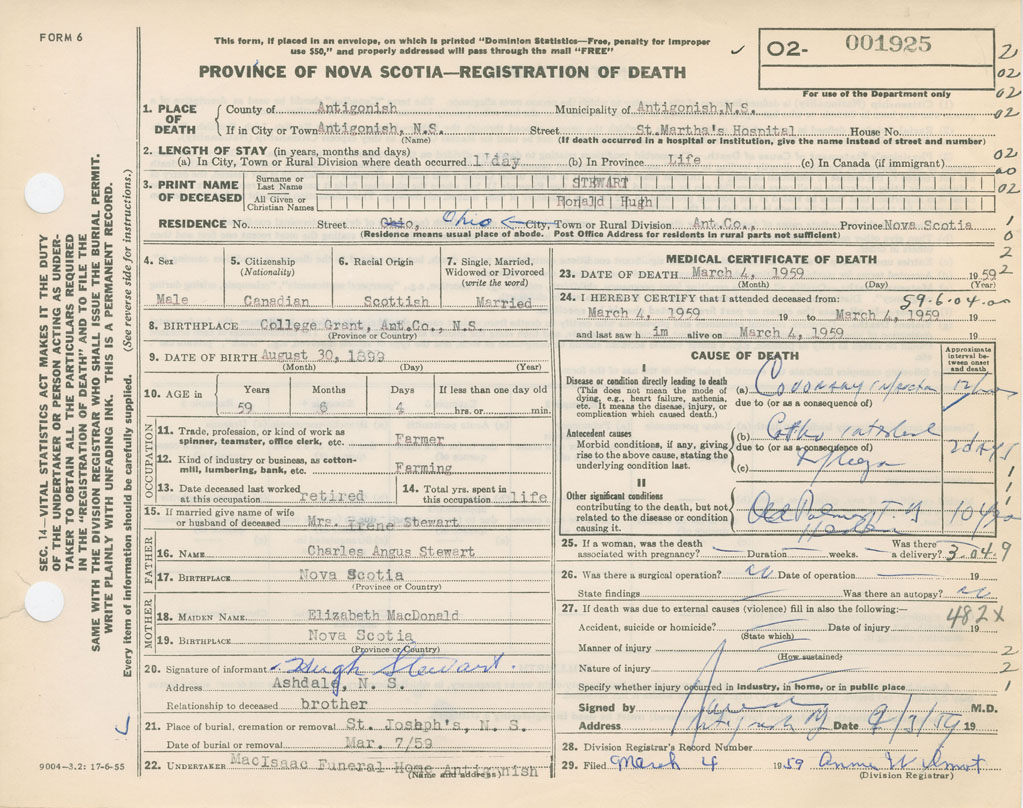 FORM 6
This form, if placed in an envelope, on which is printed "Dominion Statistics—Free, penalty for improper
use $50," and properly addressed will pass through the mail "FREE"
PROVINCE OF NOVA SCOTIA—REGISTRATION OF DEATH
02- 001925
For use of the Department only
1. PLACE OF DEATH
County of Antigonish Municipality of Antigonish,N.S.
If in City or Town Antigonish, N.S. Street St.Martha's Hospital House No.
(Name) (If death occurred in a hospital or institution, give the name instead of street and number)
2. LENGTH OF STAY (in years, months and days)
(a) In City, Town or Rural Division where death occurred 1 day (b) In Province Life (c) In Canada (if immigrant)
3. PRINT NAME OF DECEASED
Surname or Last Name STEWART
All Given or Christian Names Ronald Hugh
RESIDENCE No. Street Ohio, Ohio City, Town or Rural Division Ant.Co., Province Nova Scotia
(Residence means usual place of abode. Post Office Address for residents in rural parts not sufficient)
4. Sex
Male
5. Citizenship
(Nationality)
Canadian
6. Racial Origin
Scottish
7. Single, Married,
Widowed or Divorced
(write the word)
Married
8. BIRTHPLACE College Grant, Ant.Co., N.S.
(Province or Country)
9. DATE OF BIRTH August 30, 1899
(Month) (Day) (Year)
10. AGE in
Years Months Days If less than one day old
59 6 4 hrs. or min.
OCCUPATION
11. Trade, profession or kind of work as
spinner, teamster, office clerk, etc. Farmer
12. Kind of industry or business, as cotton-
mill, lumbering, bank, etc. Farming
13. Date deceased last worked
at this occupation retired
14. Total yrs. spent in
this occupation life
15. If married give name of wife
or husband of deceased Mrs. Irene Stewart
FATHER
16. NAME Charles Angus Stewart
17. BIRTHPLACE Nova Scotia
(Province or Country)
MOTHER
18. MAIDEN NAME Elizabeth MacDonald
19. BIRTHPLACE Nova Scotia
(Province or Country)
20. Signature of informant Hugh Stewart.
Address Ashdale, N. S.
Relationship to deceased brother
21. Place of burial, cremation or removal St. Joseph's, N. S.
Date of burial or removal Mar. 7/59
22. UNDERTAKER MacIsaac Funeral Home Antigonish
(Name and address)
9004—3.2: 17-6-55
MEDICAL CERTIFICATE OF DEATH
23. DATE OF DEATH March 4, 1959 19 59
(Month) (Day) (Year)
24. I HEREBY CERTIFY that I attended deceased from: 59-6-04-00
March 4, 1959 19 to March 4, 1959 19
and last saw h im alive on March 4, 1959 19
CAUSE OF DEATH
Approximate
interval be-
tween onset
and death
I
Disease or condition directly leading to death
(This does not mean the mode of
dying, e.g., heart failure, asthenia,
etc. It means the disease, injury, or
complication which caused death.)
(a) Coronary
due to (or as a consequence of)
Antecedent causes
Morbid conditions, if any, giving
rise to the above cause, stating the
underlying condition last.
(b)
due to (or as a consequence of)
(c)
2 days
II
Other significant conditions
contributing to the death, but not
related to the disease or condition
causing it.
Old
25. If a woman, was the death
associated with pregnancy? Duration weeks. Was there
a delivery? 3-04-9
26. Was there a surgical operation? no Date of operation 19
State findings Was there an autopsy? no
27. If death was due to external causes (violence) fill in also the following:— 482X
Accident, suicide or homicide? Date of injury 19
(State which)
Manner of injury
(How sustained)
Nature of injury
Specify whether injury occurred in industry, in home, or in public place
Signed by M.D.
Address Date 9/3/59 19
28. Division Registrar's Record Number
29. Filed March 4 1959 Annie W
(Division Registrar)
2
02
02
02
02
00
02
1
0
2
2
1
1
1
2
2
1
SEC. 14—VITAL STATISTICS ACT MAKES IT THE DUTY
OF THE UNDERTAKER OR PERSON ACTING AS UNDER-
TAKER TO OBTAIN ALL THE PARTICULARS REQUIRED
IN THE "REGISTRATION OF DEATH" AND TO FILE THE
SAME WITH THE DIVISION REGISTRAR WHO SHALL ISSUE THE BURIAL PERMIT.
WRITE PLAINLY WITH UNFADING INK. THIS IS A PERMANENT RECORD.
Every item of information should be carefully supplied. (See reverse side for instructions.)